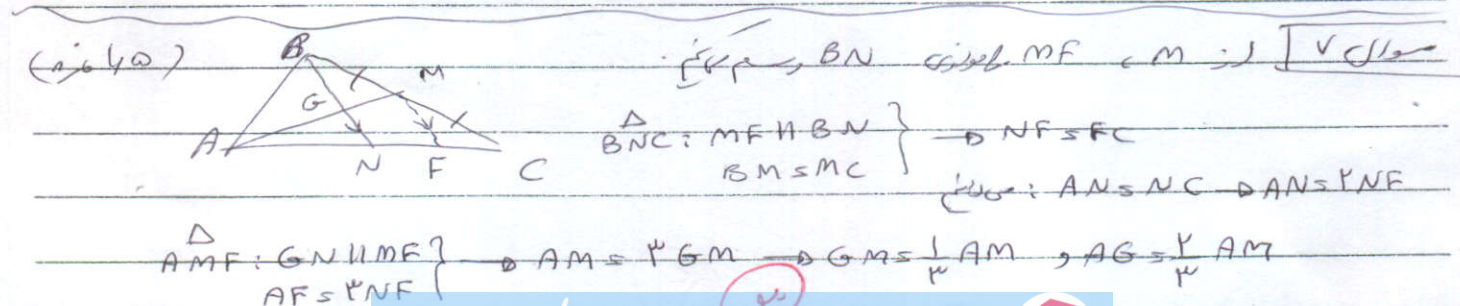 سوال ۷ از M ، MF موازی BN رسم می‌کنیم. (۱/۵ نمره)
B
M
G
A
N F C
BNC: MF || BN
BM = MC } → NF = FC
می‌دانیم: AN = NC → AN = ۲NF
AMF: GN || MF
AF = ۳NF } → AM = ۳GM → GM = ۱/۳ AM و AG = ۲/۳ AM